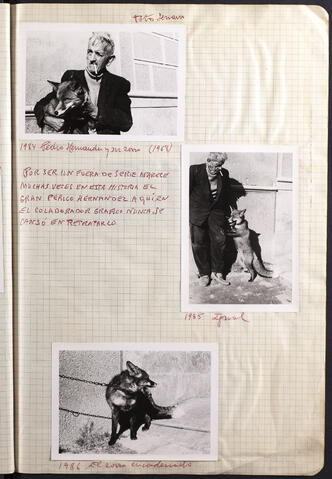 foto Serrano
1984 Pedro Hernandez y su zorro (1968)
POR SER UN FUERA DE SERIE APARECE
MUCHAS VECES EN ESTA HISTORIA EL
GRAN PERICO HERNANDEZ A QUIEN
EL COLABORADOR GRAFICO NUNCA SE
CANSÓ EN RETRATARLO
1985 Igual
1986 El zorro encadenado